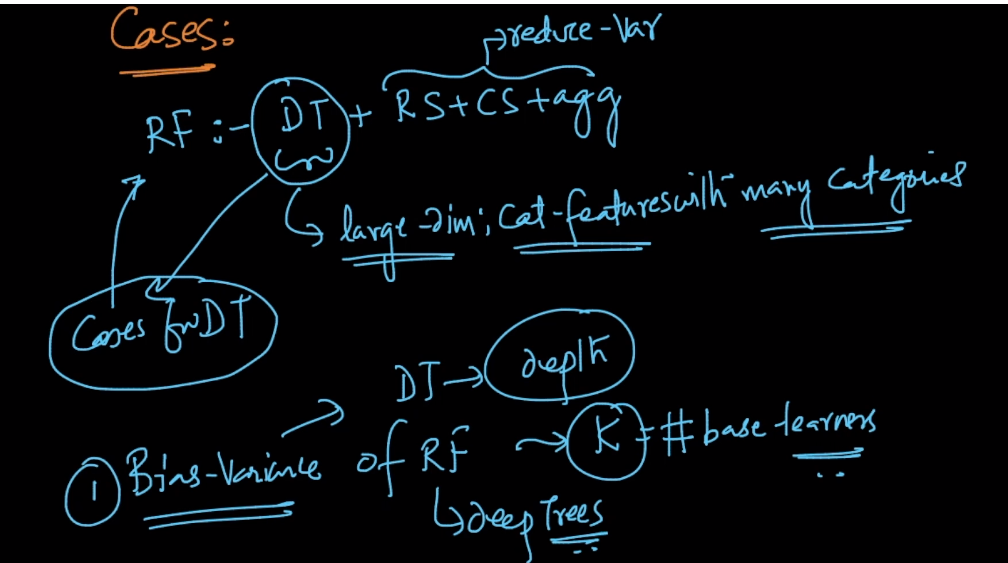 Cases:
→reduce-Var
RF :- DT + RS+CS+agg
↳ large-dim; Cat-features with many Categories
Cases for DT
DT → depth
① Bias-Variance of RF → K = # base-learners
↳ deep Trees